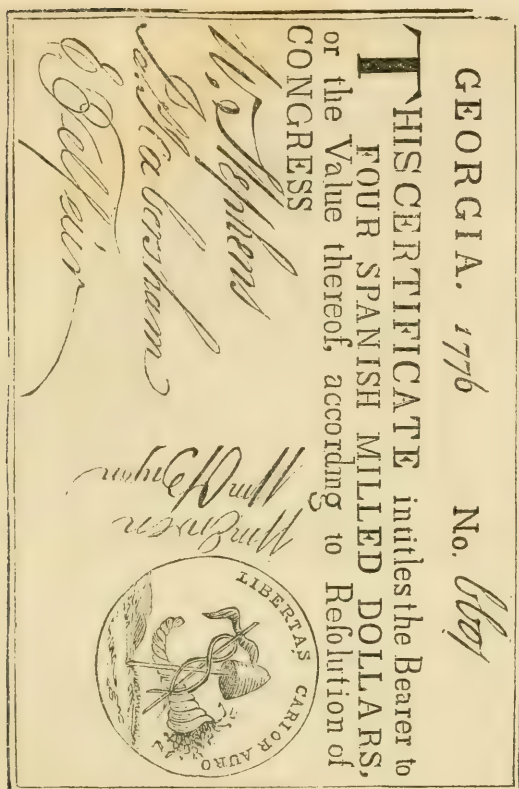 GEORGIA. 1776 No. 6601
THIS CERTIFICATE intitles the Bearer to
FOUR SPANISH MILLED DOLLARS,
or the Value thereof, according to Reſolution of
CONGRESS
W. Stephens
Habersham
E Telfair
Wm O'Bryen
Wm Ewen
LIBERTAS CARIOR AURO